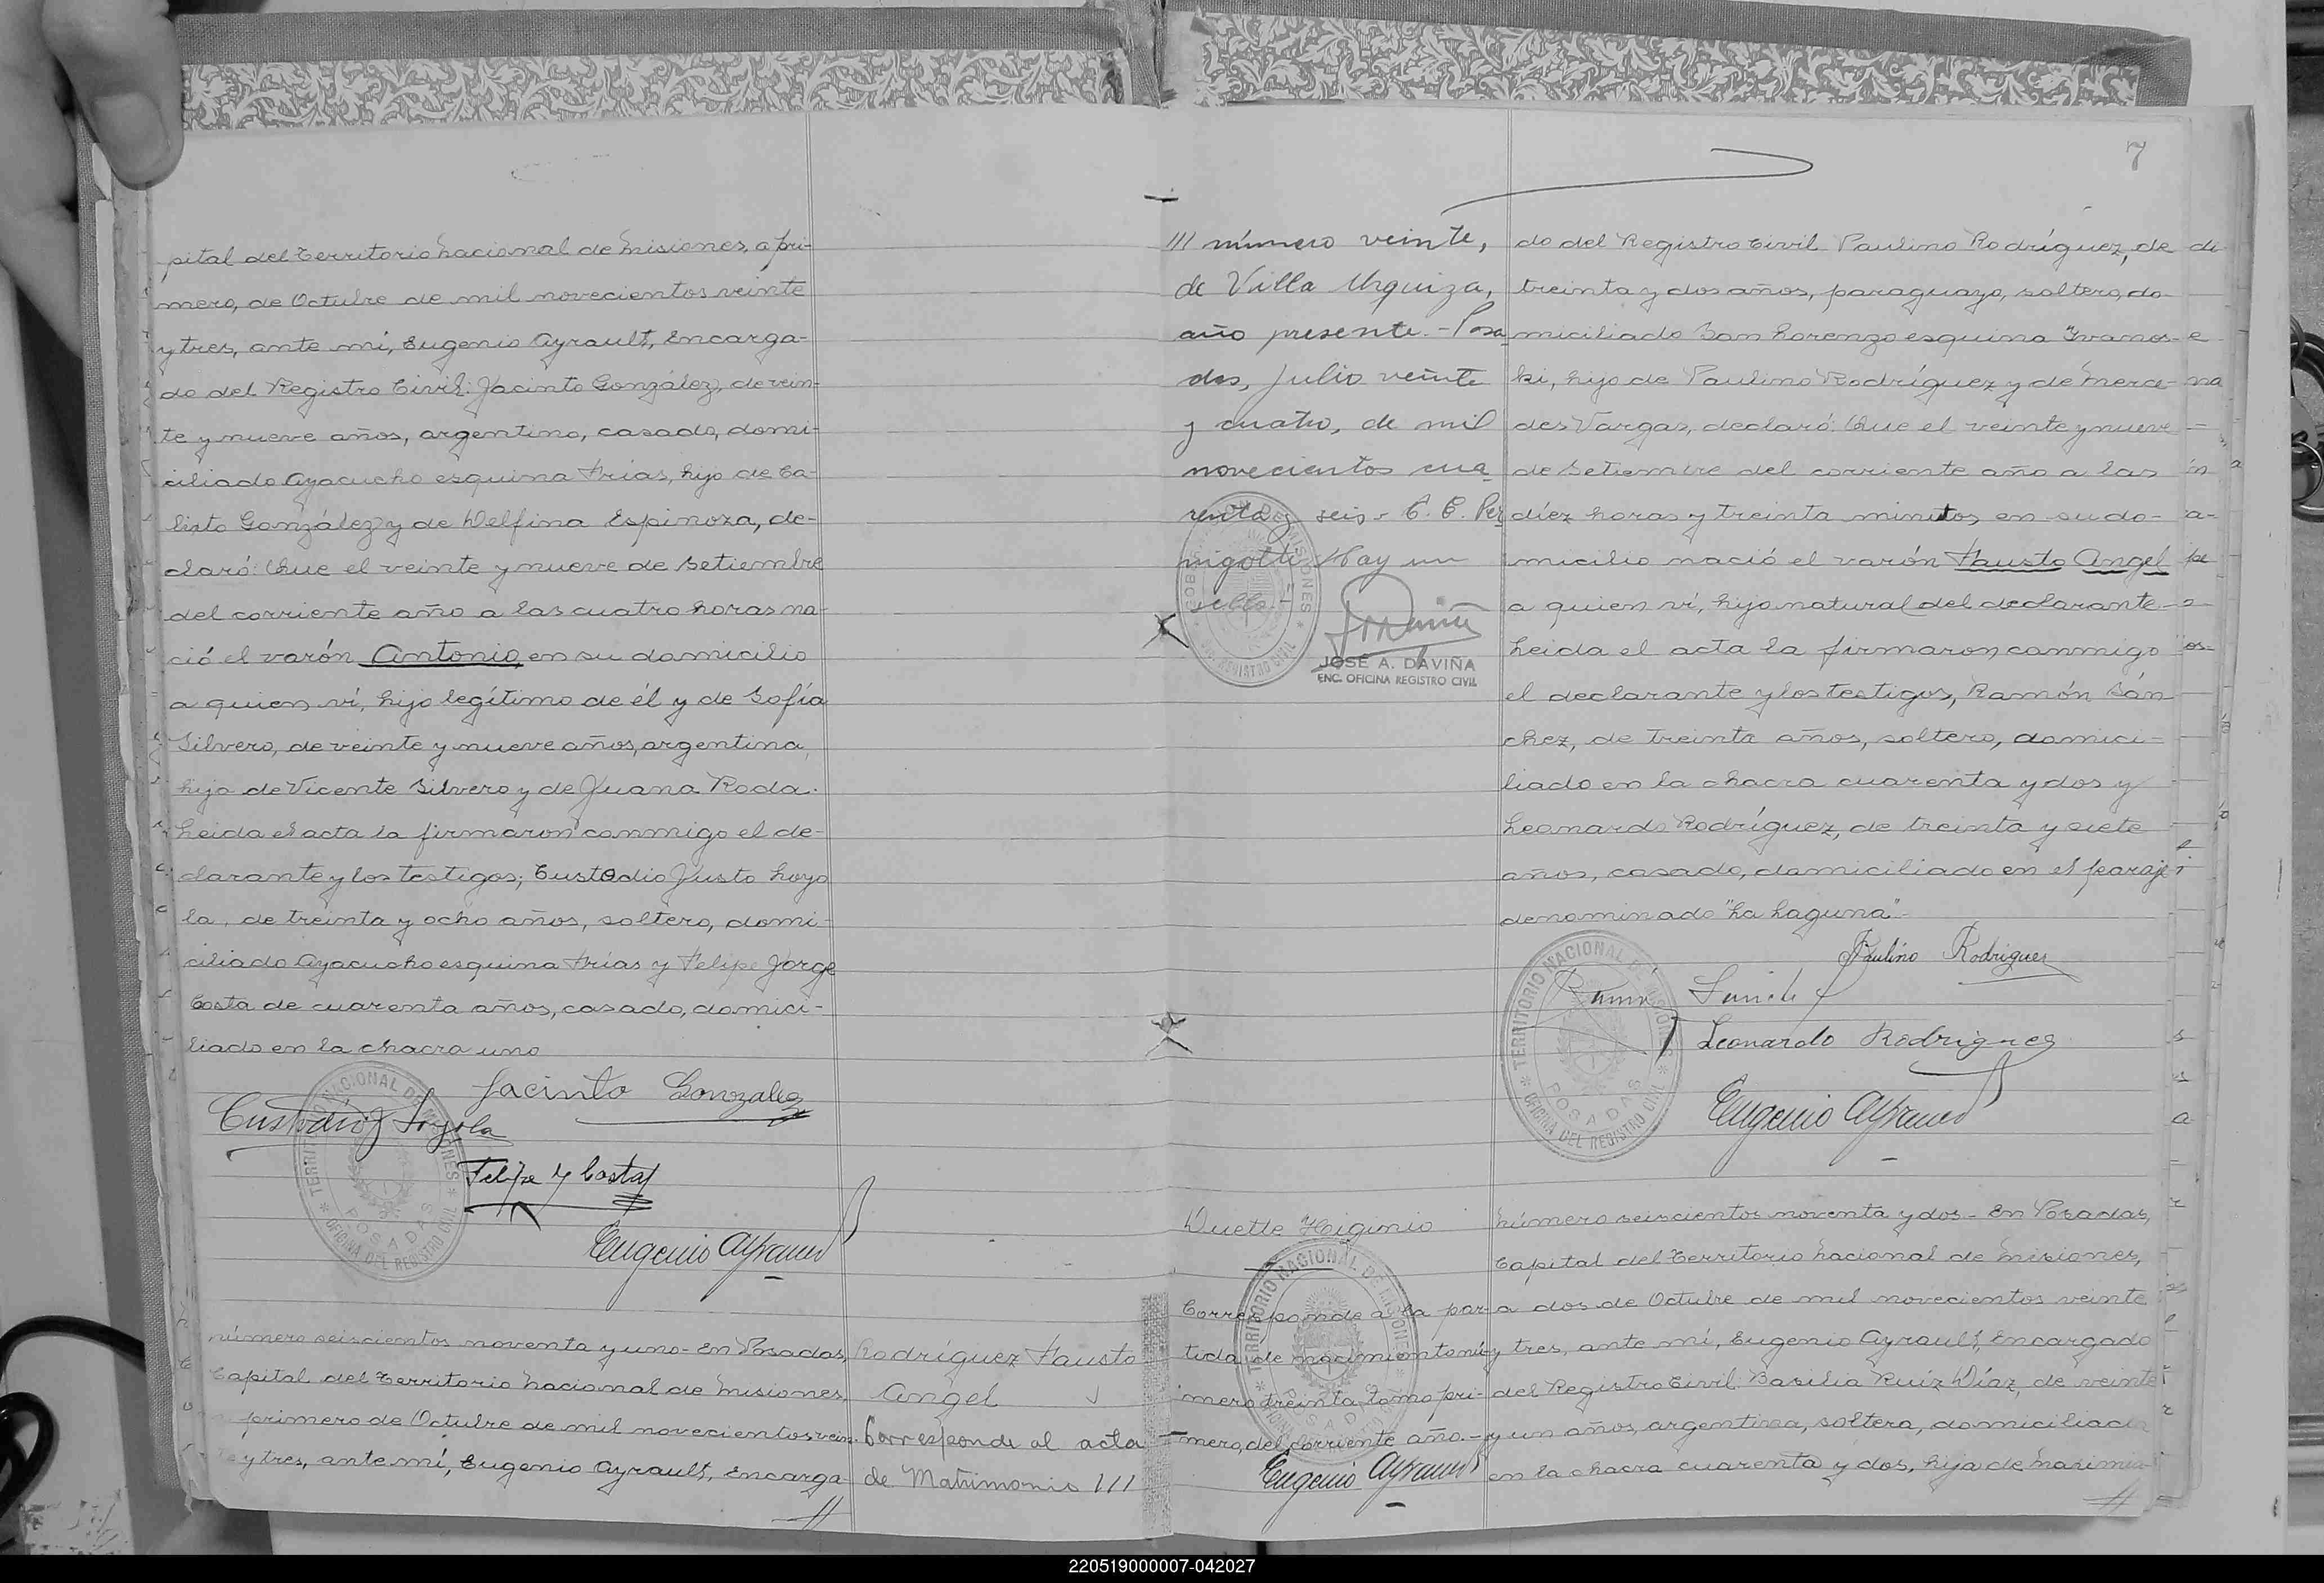 pital del Territorio Nacional de Misiones, a pri-
mero, de Octubre de mil novecientos veinte
y tres, ante mí, Eugenio Ayrault, Encarga-
do del Registro Civil: Jacinto González, de vein-
te y nueve años, argentino, casado, domi-
ciliado Ayacucho esquina Frías, hijo de Ca-
listo González y de Delfina Espinoza, de-
claró: Que el veinte y nueve de Setiembre
del corriente año a las cuatro horas na-
ció el varón Antonio, en su domicilio
a quien ví, hijo legítimo de él y de Sofía
Silvero, de veinte y nueve años, argentina,
hija de Vicente Silvero y de Juana Roda.
Leida el acta la firmaron conmigo el de-
clarante y los testigos; Custodio Justo Loyo
la, de treinta y ocho años, soltero, domi-
ciliado Ayacucho esquina Frías y Felipe Jorge
Costa de cuarenta años, casado, domici-
liado en la chacra uno
Jacinto Gonzalez
Custodio J Loyola
Felipe J Costa
Eugenio Ayrault
TERRITORIO NACIONAL DE MISIONES
POSADAS
OFICINA DEL REGISTRO CIVIL
Número seiscientos noventa y uno- En Posadas,
Capital del Territorio Nacional de Misiones,
primero de Octubre de mil novecientos vein-
te y tres, ante mí, Eugenio Ayrault, Encarga-
Rodríguez Fausto
Angel
Corresponde al acta
de Matrimonio ///
7
/// número veinte,
de Villa Urquiza,
año presente.- Posa
das, Julio veinte
y cuatro, de mil
novecientos cua
renta y seis- C. C. Per
nigotti Hay un
sello.-
JOSÉ A. DAVIÑA
ENC. OFICINA REGISTRO CIVIL
do del Registro Civil Paulino Rodríguez, de
treinta y dos años, paraguayo, soltero, do-
miciliado San Lorenzo esquina Ivanos-
ki, hijo de Paulino Rodríguez y de Merce-
des Vargas, declaró: Que el veinte y nueve
de Setiembre del corriente año a las
diéz horas y treinta minutos en su do-
micilio nació el varón Fausto Angel
a quien ví, hijo natural del declarante-
Leida el acta la firmaron conmigo
el declarante y los testigos, Ramón Sán
chez, de treinta años, soltero, domici-
liado en la chacra cuarenta y dos y
Leonardo Rodríguez, de treinta y siete
años, casado, domiciliado en el paraje
denominado "La Laguna"-
Paulino Rodriguez
Leonardo Rodrigues
Eugenio Ayrault
TERRITORIO NACIONAL DE MISIONES
POSADAS
OFICINA DEL REGISTRO CIVIL
Duette Higinio
Corresponde a la par-
tida de nacimiento nú-
mero treinta tomo pri-
mero, del corriente año.-
Eugenio Ayrault
TERRITORIO NACIONAL DE MISIONES
Número seiscientos noventa y dos- En Posadas,
Capital del Territorio Nacional de Misiones,
a dos de Octubre de mil novecientos veinte
y tres, ante mí, Eugenio Ayrault, Encargado
del Registro Civil: Basilia Ruiz Díaz, de veinte
y un años, argentina, soltera, domiciliada
en la chacra cuarenta y dos, hija de
220519000007-042027